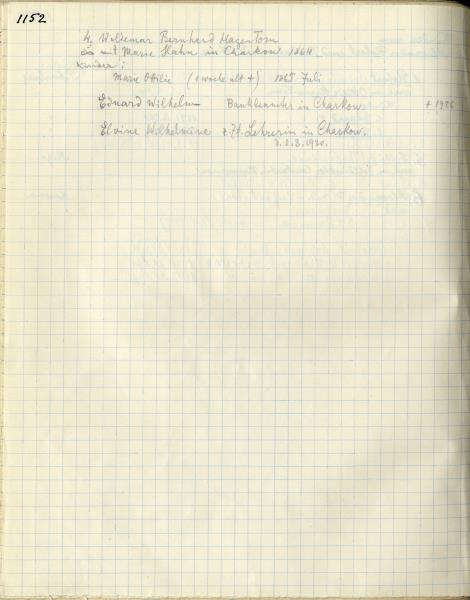 1152
4. Woldemar Bernhard HagenTorn
∞ mit Marie Hahn in Charkow 1864
Kinder:
Marie Ottilie (1 woche alt +) 1865 Juli
Eduard Wilhelm Bankbeamter in Charkow. + 1926
Elvine Wilhelmine z. Zt. Lehrerin in Charkow.
2.3.1930.